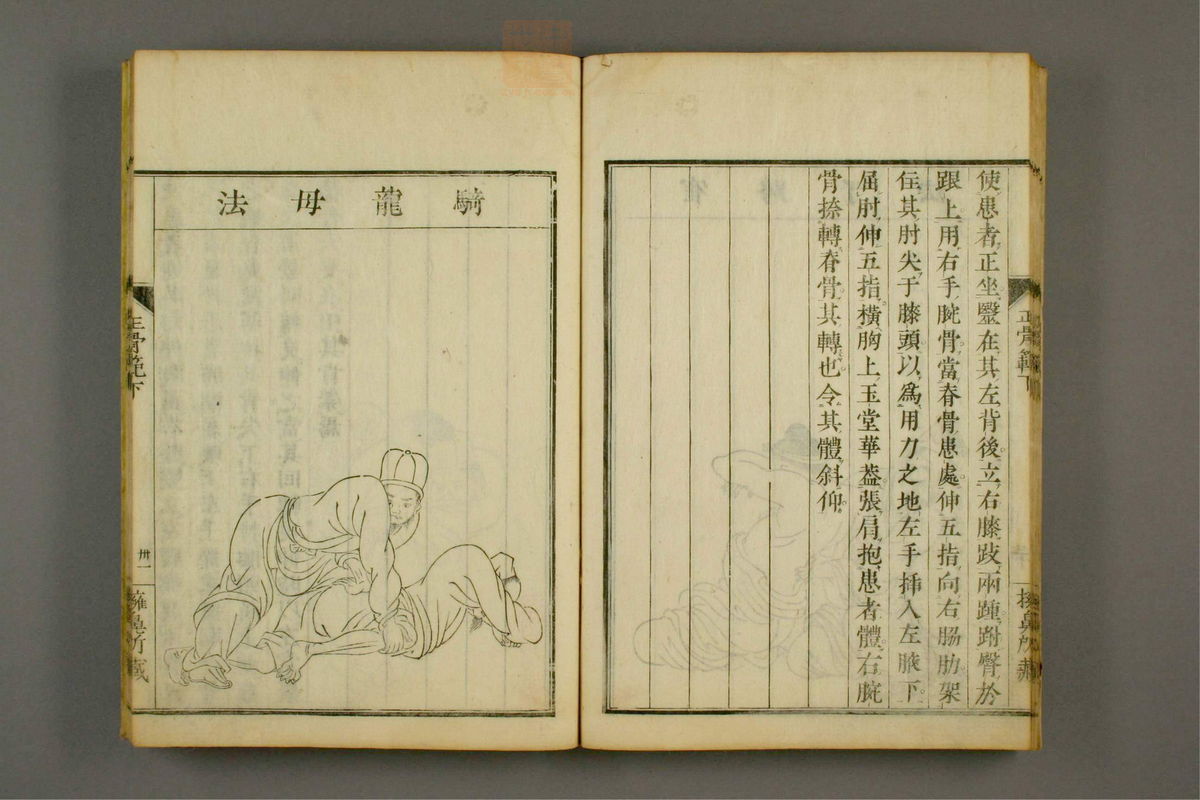 使患者正坐毉在其左背後立右膝跂兩踵跗臀於
跟上用右手腕骨當脊骨患處伸五指向右肠肋架
住其肘尖于膝頭以爲用力之地左手挿入左腋下
屈肘伸五指橫胸上玉堂華葢張肩抱患者體右腕
骨捺轉脊骨其轉也令其體斜仰
正骨範下
騎龍毋法
正骨範下
卅一